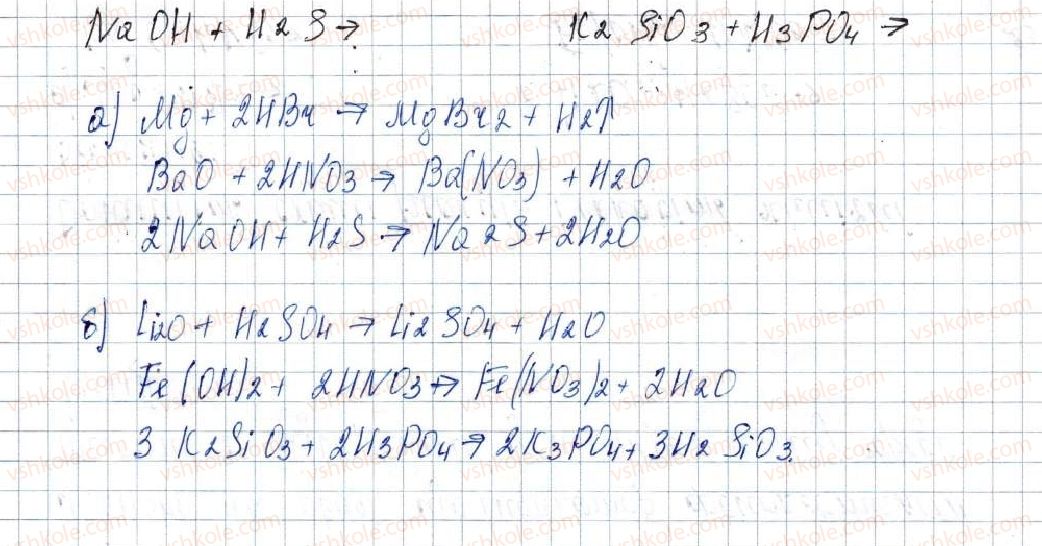 NaOH + H2S → K2SiO3 + H3PO4 →
а) Mg + 2HBr → MgBr2 + H2↑
BaO + 2HNO3 → Ba(NO3) + H2O
2NaOH + H2S → Na2S + 2H2O
б) Li2O + H2SO4 → Li2SO4 + H2O
Fe(OH)2 + 2HNO3 → Fe(NO3)2 + 2H2O
3 K2SiO3 + 2H3PO4 → 2K3PO4 + 3H2SiO3.